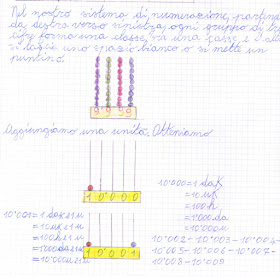 Nel nostro sistema di numerazione, partendo
da destra verso sinistra, ogni gruppo di tre
cifre forma una classe, tra una classe e l'altra
si lascia uno spazio bianco o si mette un
puntino.
9 9 9 9
Aggiungiamo una unità. Otteniamo
1 0 0 0 0
10˙000 = 1 dak
= 10 uk
= 100 h
= 1˙000 da
= 10˙000 u
10˙001 = 1 dak e 1 u
= 10 uk e 1 u
= 100 h e 1 u
= 1˙000 da e 1 u
= 10˙000 u e 1 u
1 0 0 0 1
10˙002 - 10˙003 - 10˙004 -
10˙005 - 10˙006 - 10˙007 -
10˙008 - 10˙009